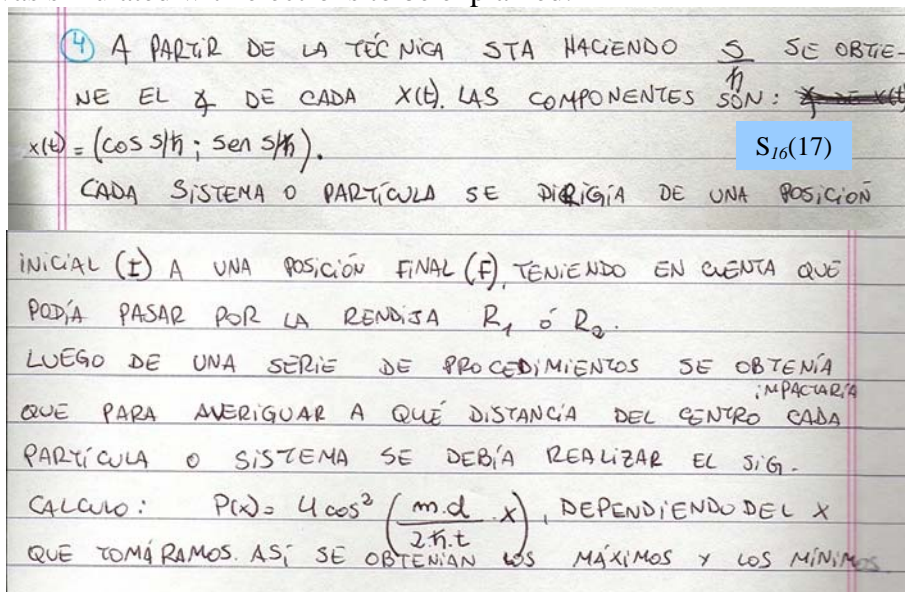 ④ A PARTIR DE LA TÉCNICA STA HACIENDO S/ħ SE OBTIE-
NE EL ∡ DE CADA X(t). LAS COMPONENTES SON:
x(t) = (cos S/ħ ; sen S/ħ).
S16(17)
CADA SISTEMA O PARTÍCULA SE DIRIGÍA DE UNA POSICIÓN
INICIAL (I) A UNA POSICIÓN FINAL (F), TENIENDO EN CUENTA QUE
PODÍA PASAR POR LA RENDIJA R₁ ó R₂.
LUEGO DE UNA SERIE DE PROCEDIMIENTOS SE OBTENÍA
QUE PARA AVERIGUAR A QUÉ DISTANCIA DEL CENTRO IMPACTARÍA CADA
PARTÍCULA O SISTEMA SE DEBÍA REALIZAR EL SIG.
CALCULO: P(x) = 4 cos² (m.d/2ħ.t . x), DEPENDIENDO DEL X
QUE TOMÁRAMOS. ASÍ SE OBTENÍAN LOS MÁXIMOS Y LOS MÍNIMOS